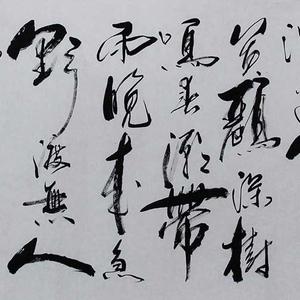 黄鸝深樹
鳴春潮帶
雨晚来急
野渡無人